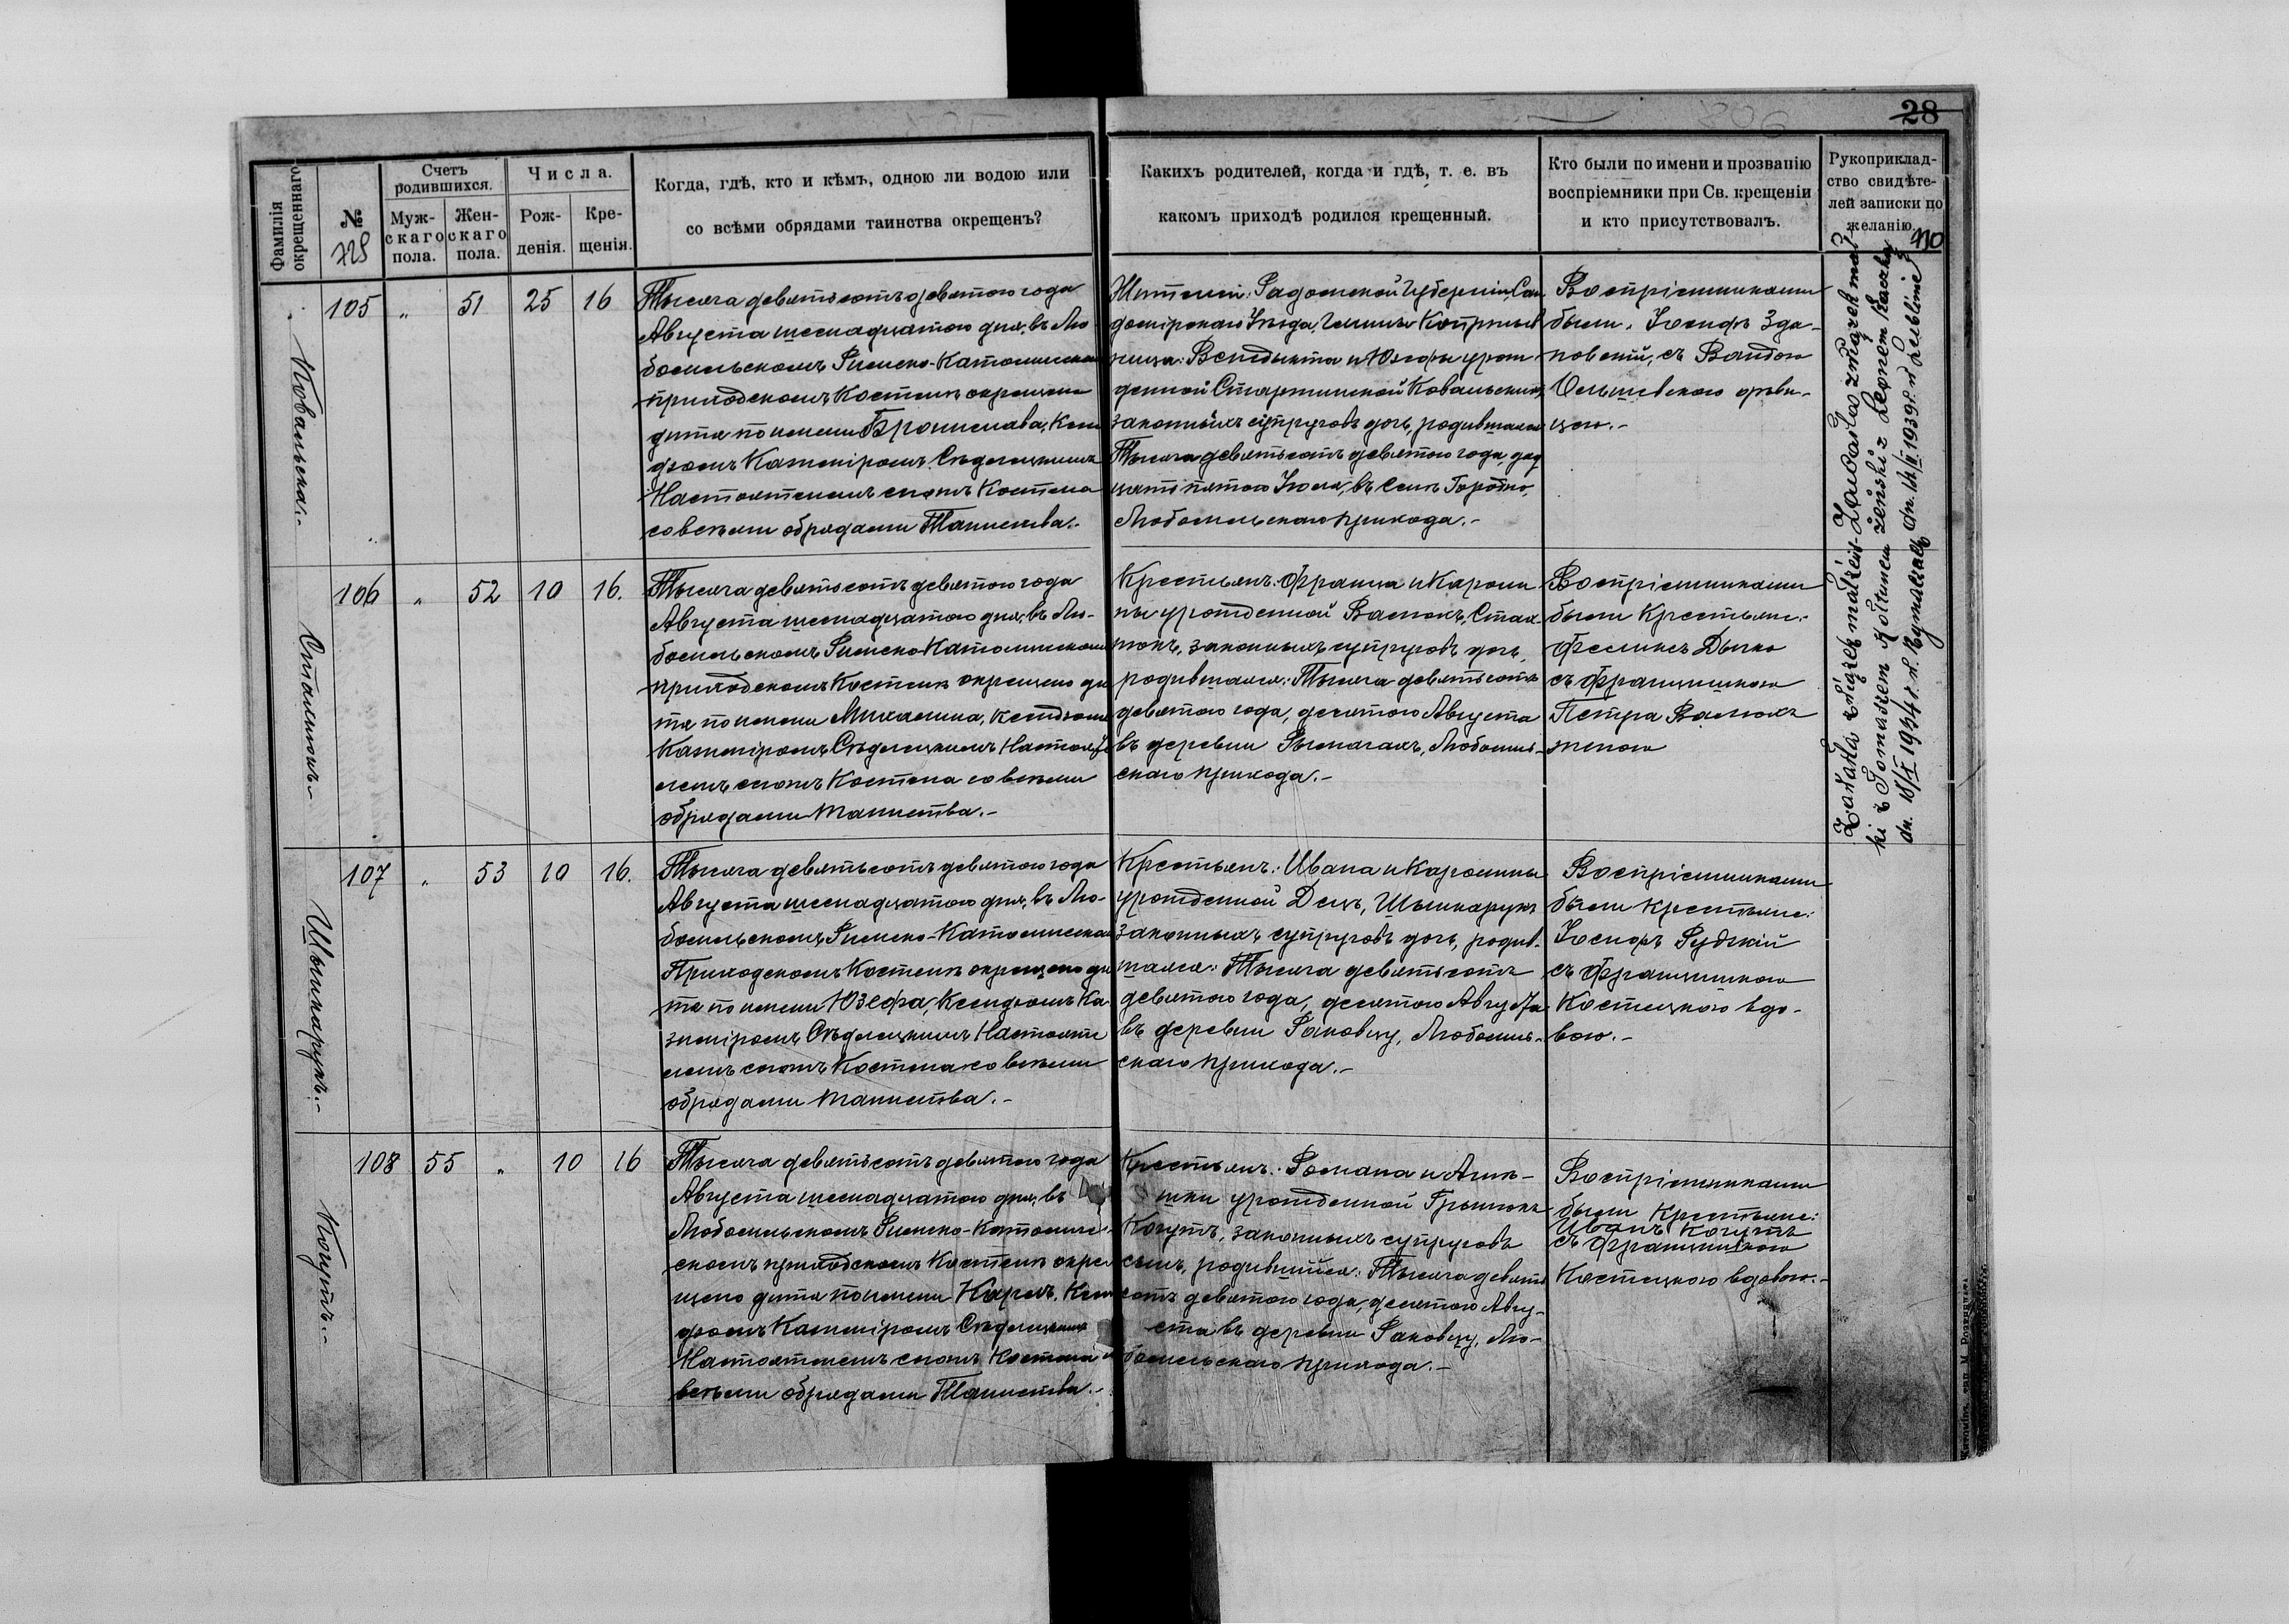 28
Фамилія окрещеннаго
№
728
Счетъ родившихся.
Муж-
скаго
пола.
Жен-
скаго
пола.
Числа.
Рож-
денія.
Кре-
щенія.
Когда, гдѣ, кто и кѣмъ, одною ли водою или
со всѣми обрядами таинства окрещенъ?
Какихъ родителей, когда и гдѣ, т. е. въ
какомъ приходѣ родился крещенный.
Кто были по имени и прозванію
воспріемники при Св. крещеніи
и кто присутствовалъ.
Рукоприклад-
ство свидѣте-
лей записки по
желанію.
Ковальска.-
105 " 51 25 16
Тысяча девятьсотъ девятого года
Августа шеснадцатого дня, въ Лю-
бомльскомъ Римско-Католическомъ
приходскомъ Костелѣ окрещено
дитя по имени Бронислава, Ксен
дзомъ Казиміромъ Сѣдлецкимъ
Настоятелемъ сего Костела
со всѣми обрядами Таинства.-
Жителей: Радомской Губерніи, Сан
домірскаго Уѣзда, Гмины
Бенедыкта и Юзефы урож
денной Ковальскихъ
законныхъ супруговъ дочь, родившаяся
Тысяча девятьсотъ девятого года, два
цать пятого Іюля, въ селѣ Городно,
Любомльскаго прихода.-
Воспріемниками
были: Іосифъ Зда-
новскій, съ Вандою
дѣви-
цею.-
Сталнюкъ.-
106 " 52 10 16.
Тысяча девятьсотъ девятого года
Августа шеснадцатого дня, въ Лю-
бомльскомъ Римско-Католическомъ
приходскомъ Костелѣ окрещено ди
тя по имени Михалина, Ксендзомъ
Казиміромъ Сѣдлецкимъ Настояте
лемъ сего Костела со всѣми
обрядами Таинства.-
Крестьянъ: Франца и Кароли
ны урожденной Валюкъ,
законныхъ супруговъ дочь,
родившаяся: Тысяча девятьсотъ
девятого года, десятого Августа
въ деревни Рымачахъ, Любомль-
скаго прихода.-
Воспріемниками
были Крестьяне:
Феликсъ Дычко
съ Францишкою
Петра Валюкъ
женою
Шышкарукъ.-
107 " 53 10 16.
Тысяча девятьсотъ девятого года
Августа шеснадцатого дня, въ Лю-
бомльскомъ Римско-Католическомъ
Приходскомъ Костелѣ окрещено ди
тя по имени Юзефа, Ксендзомъ Ка
зиміромъ Сѣдлецкимъ Настояте
лемъ сего Костела со всѣми
обрядами Таинства.-
Крестьянъ: Ивана и Каролины
урожденной Децъ, Шышкарукъ
законныхъ супруговъ дочь, родив-
шаяся: Тысяча девятьсотъ
девятого года, десятого Августа
въ деревни Раковцу, Любомль-
скаго прихода.-
Воспріемниками
были Крестьяне:
Іосифъ Рудзкій
съ Францишкою
Костецкою вдо-
вою.-
Когутъ.-
108 55 " 10 16
Тысяча девятьсотъ девятого года
Августа шеснадцатого дня, въ
Любомльскомъ Римско-Католиче-
скомъ приходскомъ Костелѣ окре
щено дитя по имени Кароль, Ксен
дзомъ Казиміромъ Сѣдлецкимъ
Настоятелемъ сего Костела со
всѣми обрядами Таинства.-
Крестьянъ: Романа и Агнѣ-
шки урожденной Грынюкъ
Когутъ, законныхъ супруговъ
сынъ, родившійся: Тысяча девять
сотъ девятого года, десятого Авгу-
ста въ деревни Раковцу, Лю-
бомльскаго прихода.-
Воспріемниками
были Крестьяне:
Иванъ Когутъ
съ Францишкою
Костецкою вдовою.-
Zawarła związek małżeń-
ski z Tomaszem Kołtunem
dn. 18/X 1934 r. w Rymaczach
Zawarła związek mał-
żeński z Leonem
dn. 14/VI 1939 r. w Lublinie